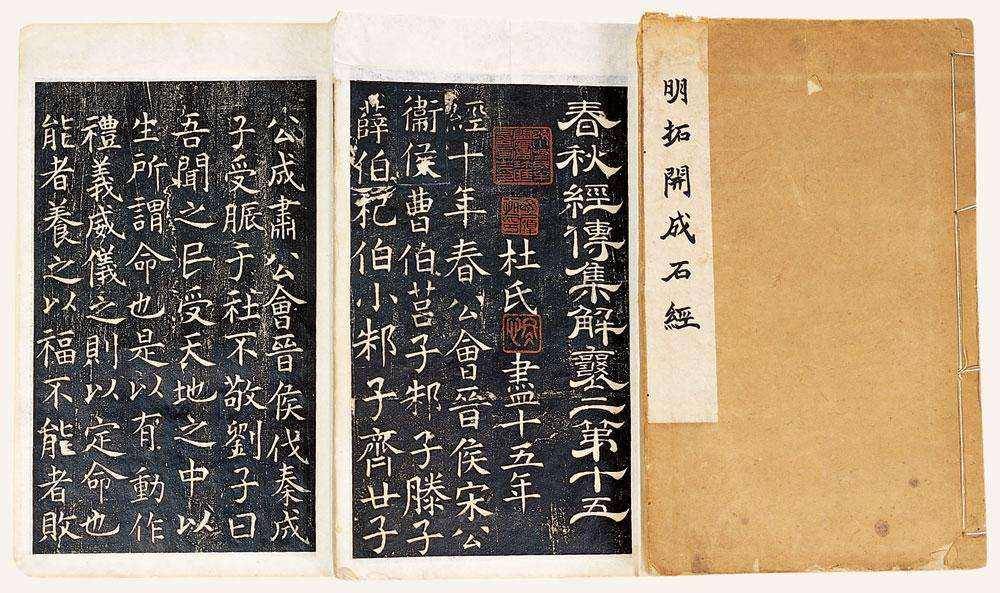 明拓開成石經
春秋經傳集解襄二第十五
杜氏 盡十五年
經十年春公會晉侯宋公
衞侯曹伯莒子邾子滕子
薛伯杞伯小邾子齊廿子
公成肅公會晉侯伐秦成
子受脤于社不敬劉子曰
吾聞之民受天地之中以
生所謂命也是以有動作
禮義威儀之則以定命也
能者養之以福不能者敗